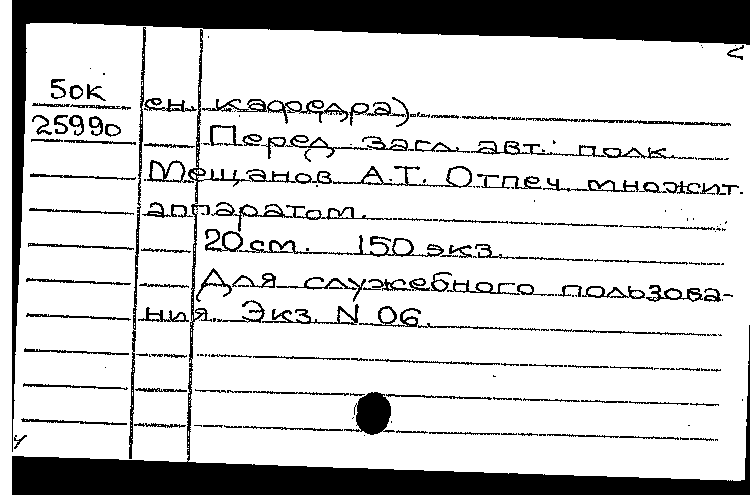 50к
25990
ен. кафедра).
Перед загл. авт.: полк.
Мещанов А.Т. Отпеч. множит.
аппаратом.
20 см. 150 экз.
Для служебного пользова-
ния. Экз. N 06.